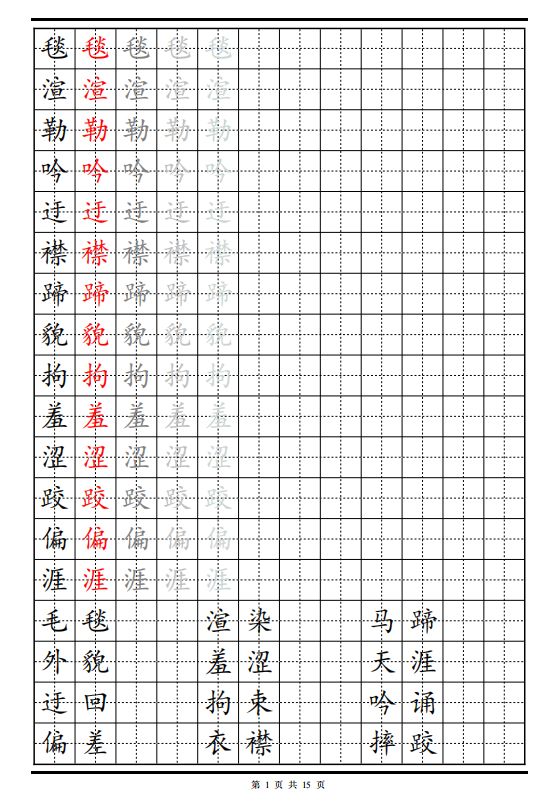 毯 毯 毯 毯 毯
渲 渲 渲 渲 渲
勒 勒 勒 勒 勒
吟 吟 吟 吟 吟
迂 迂 迂 迂 迂
襟 襟 襟 襟 襟
蹄 蹄 蹄 蹄 蹄
貌 貌 貌 貌 貌
拘 拘 拘 拘 拘
羞 羞 羞 羞 羞
涩 涩 涩 涩 涩
跤 跤 跤 跤 跤
偏 偏 偏 偏 偏
涯 涯 涯 涯 涯
毛 毯 渲 染 马 蹄
外 貌 羞 涩 天 涯
迂 回 拘 束 吟 诵
偏 差 衣 襟 摔 跤
第 1 页 共 15 页